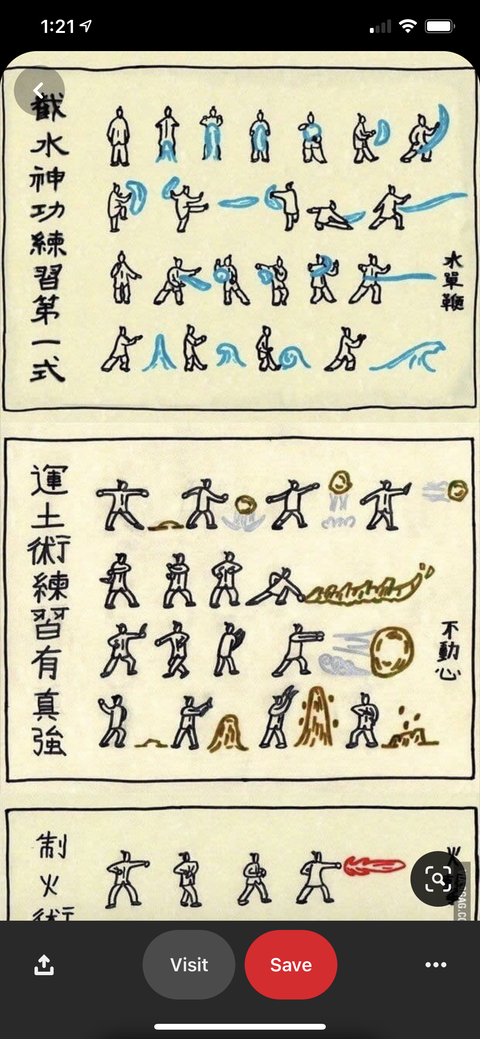 1:21
截水神功練習第一式
水單鞭
運土術練習有真強
不動心
制火術
火
Visit
Save